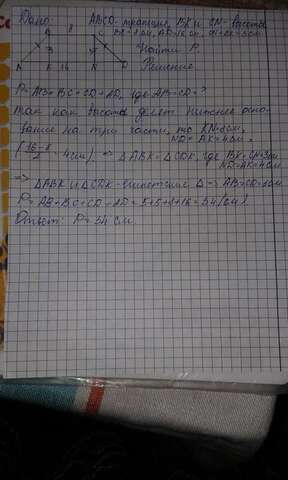 Дано: ABCD-трапеция, BK и CN-высоты
8 BC=8см, AD=16см, BK=CN=3см
B C
Найти P.
3
A K 16 N D Решение
P=AB+BC+CD+AD, где AB=CD=?
Так как высота делит нижнее осно-
вание на три части, то KN=8см,
ND=AK=4см.
(16-8/2=4см) => △ABK=△CDK, где BK=CN=3см
ND=AK=4см
=> △ABK и △CDK-египетские △ => AB=CD=5см
P=AB+BC+CD+AD=5+5+8+16=54(см)
Ответ: P=54 см